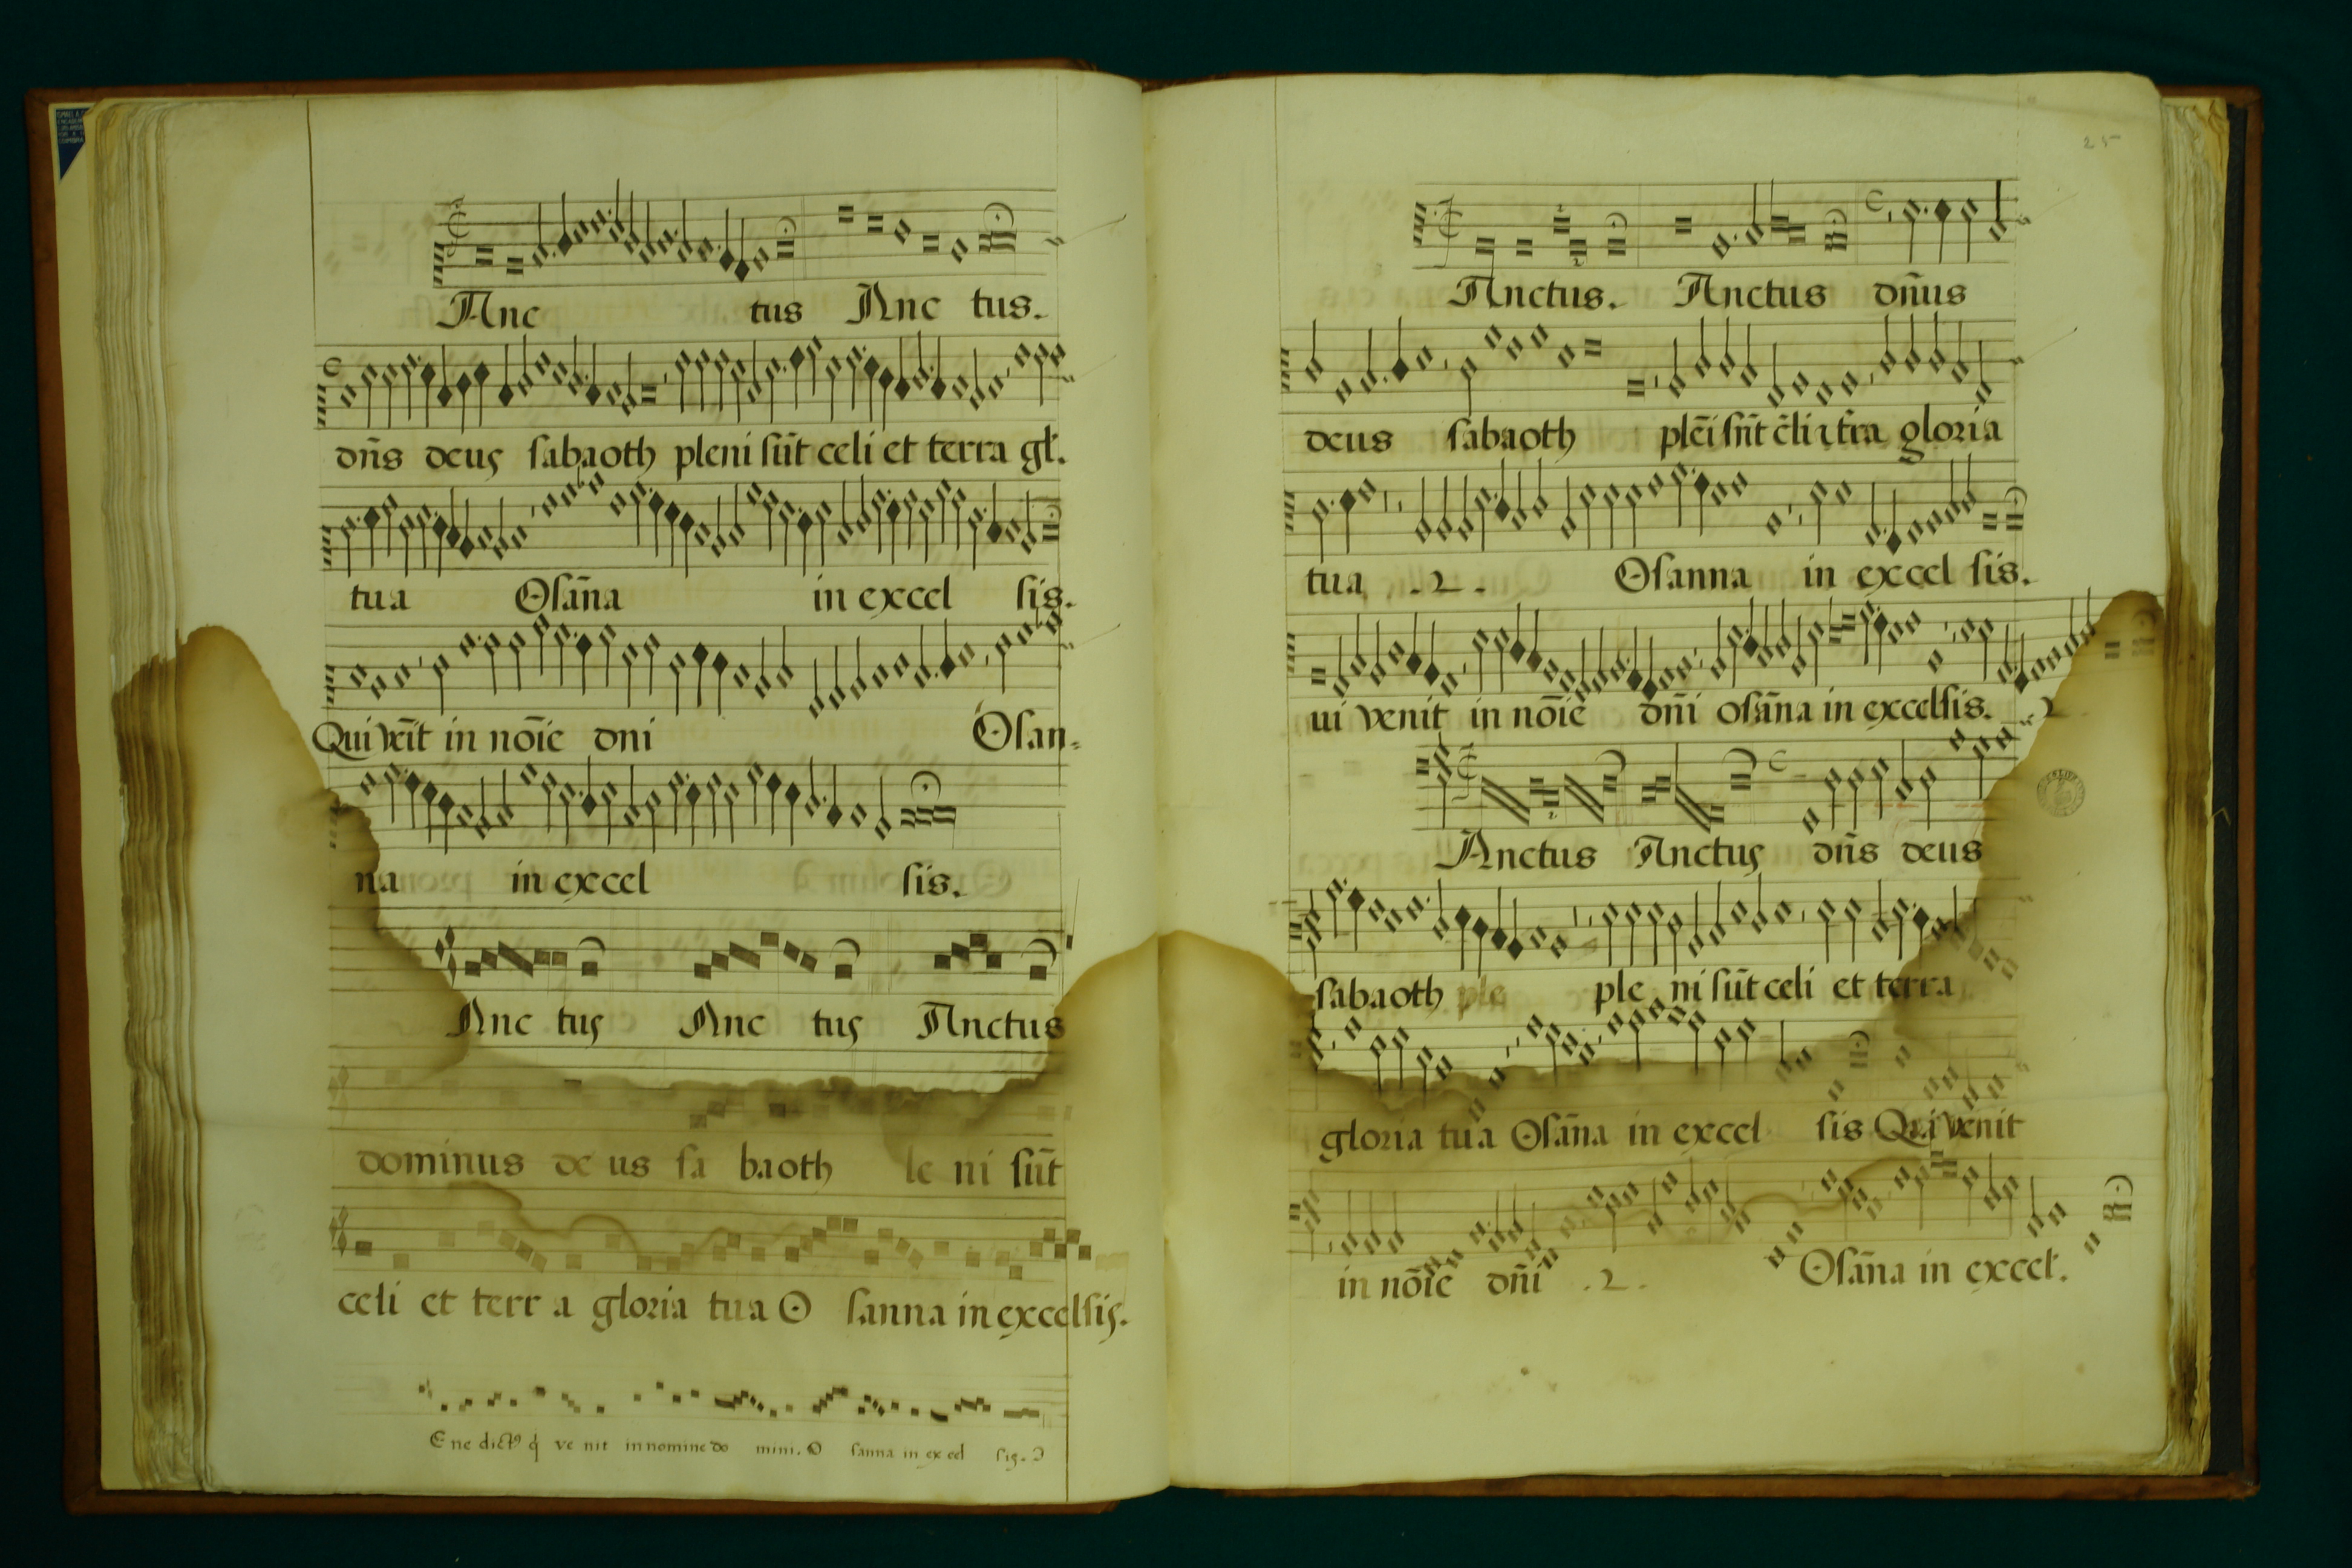 Anc tus Anc tus.
dñs deus sabaoth pleni sũt celi et terra gł.
tua Osãna in excel sis.
Qui vẽit in nõie dni Osan-
na in excel sis.
Anc tus Anc tus Anctus
dominus de us sa baoth le ni sũt
celi et terr a gloria tua O sanna in excelsis.
E ne dictꝰ q̃ ve nit in nomine do mini. O sanna in ex cel sis.
25
Anctus. Anctus dñus
deus sabaoth plẽi sũt cẽli ⁊ tr̃a gloria
tua .2. Osanna in excel sis.
ui venit in nõie dñi osãna in excelsis. 2
Anctus Anctus dñs deus
sabaoth ple ple ni sũt celi et terra
gloria tua Osãna in excel sis Qui venit
in nõie dñi .2. Osãna in exceł.